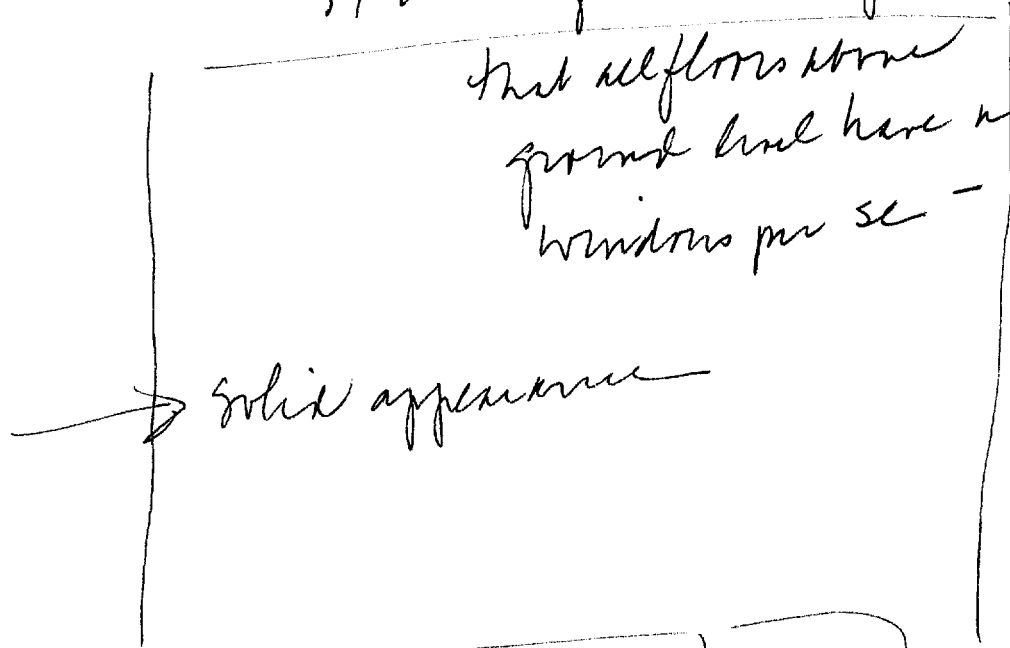 that all floors above
ground level have
windows per se -
Solid appearance